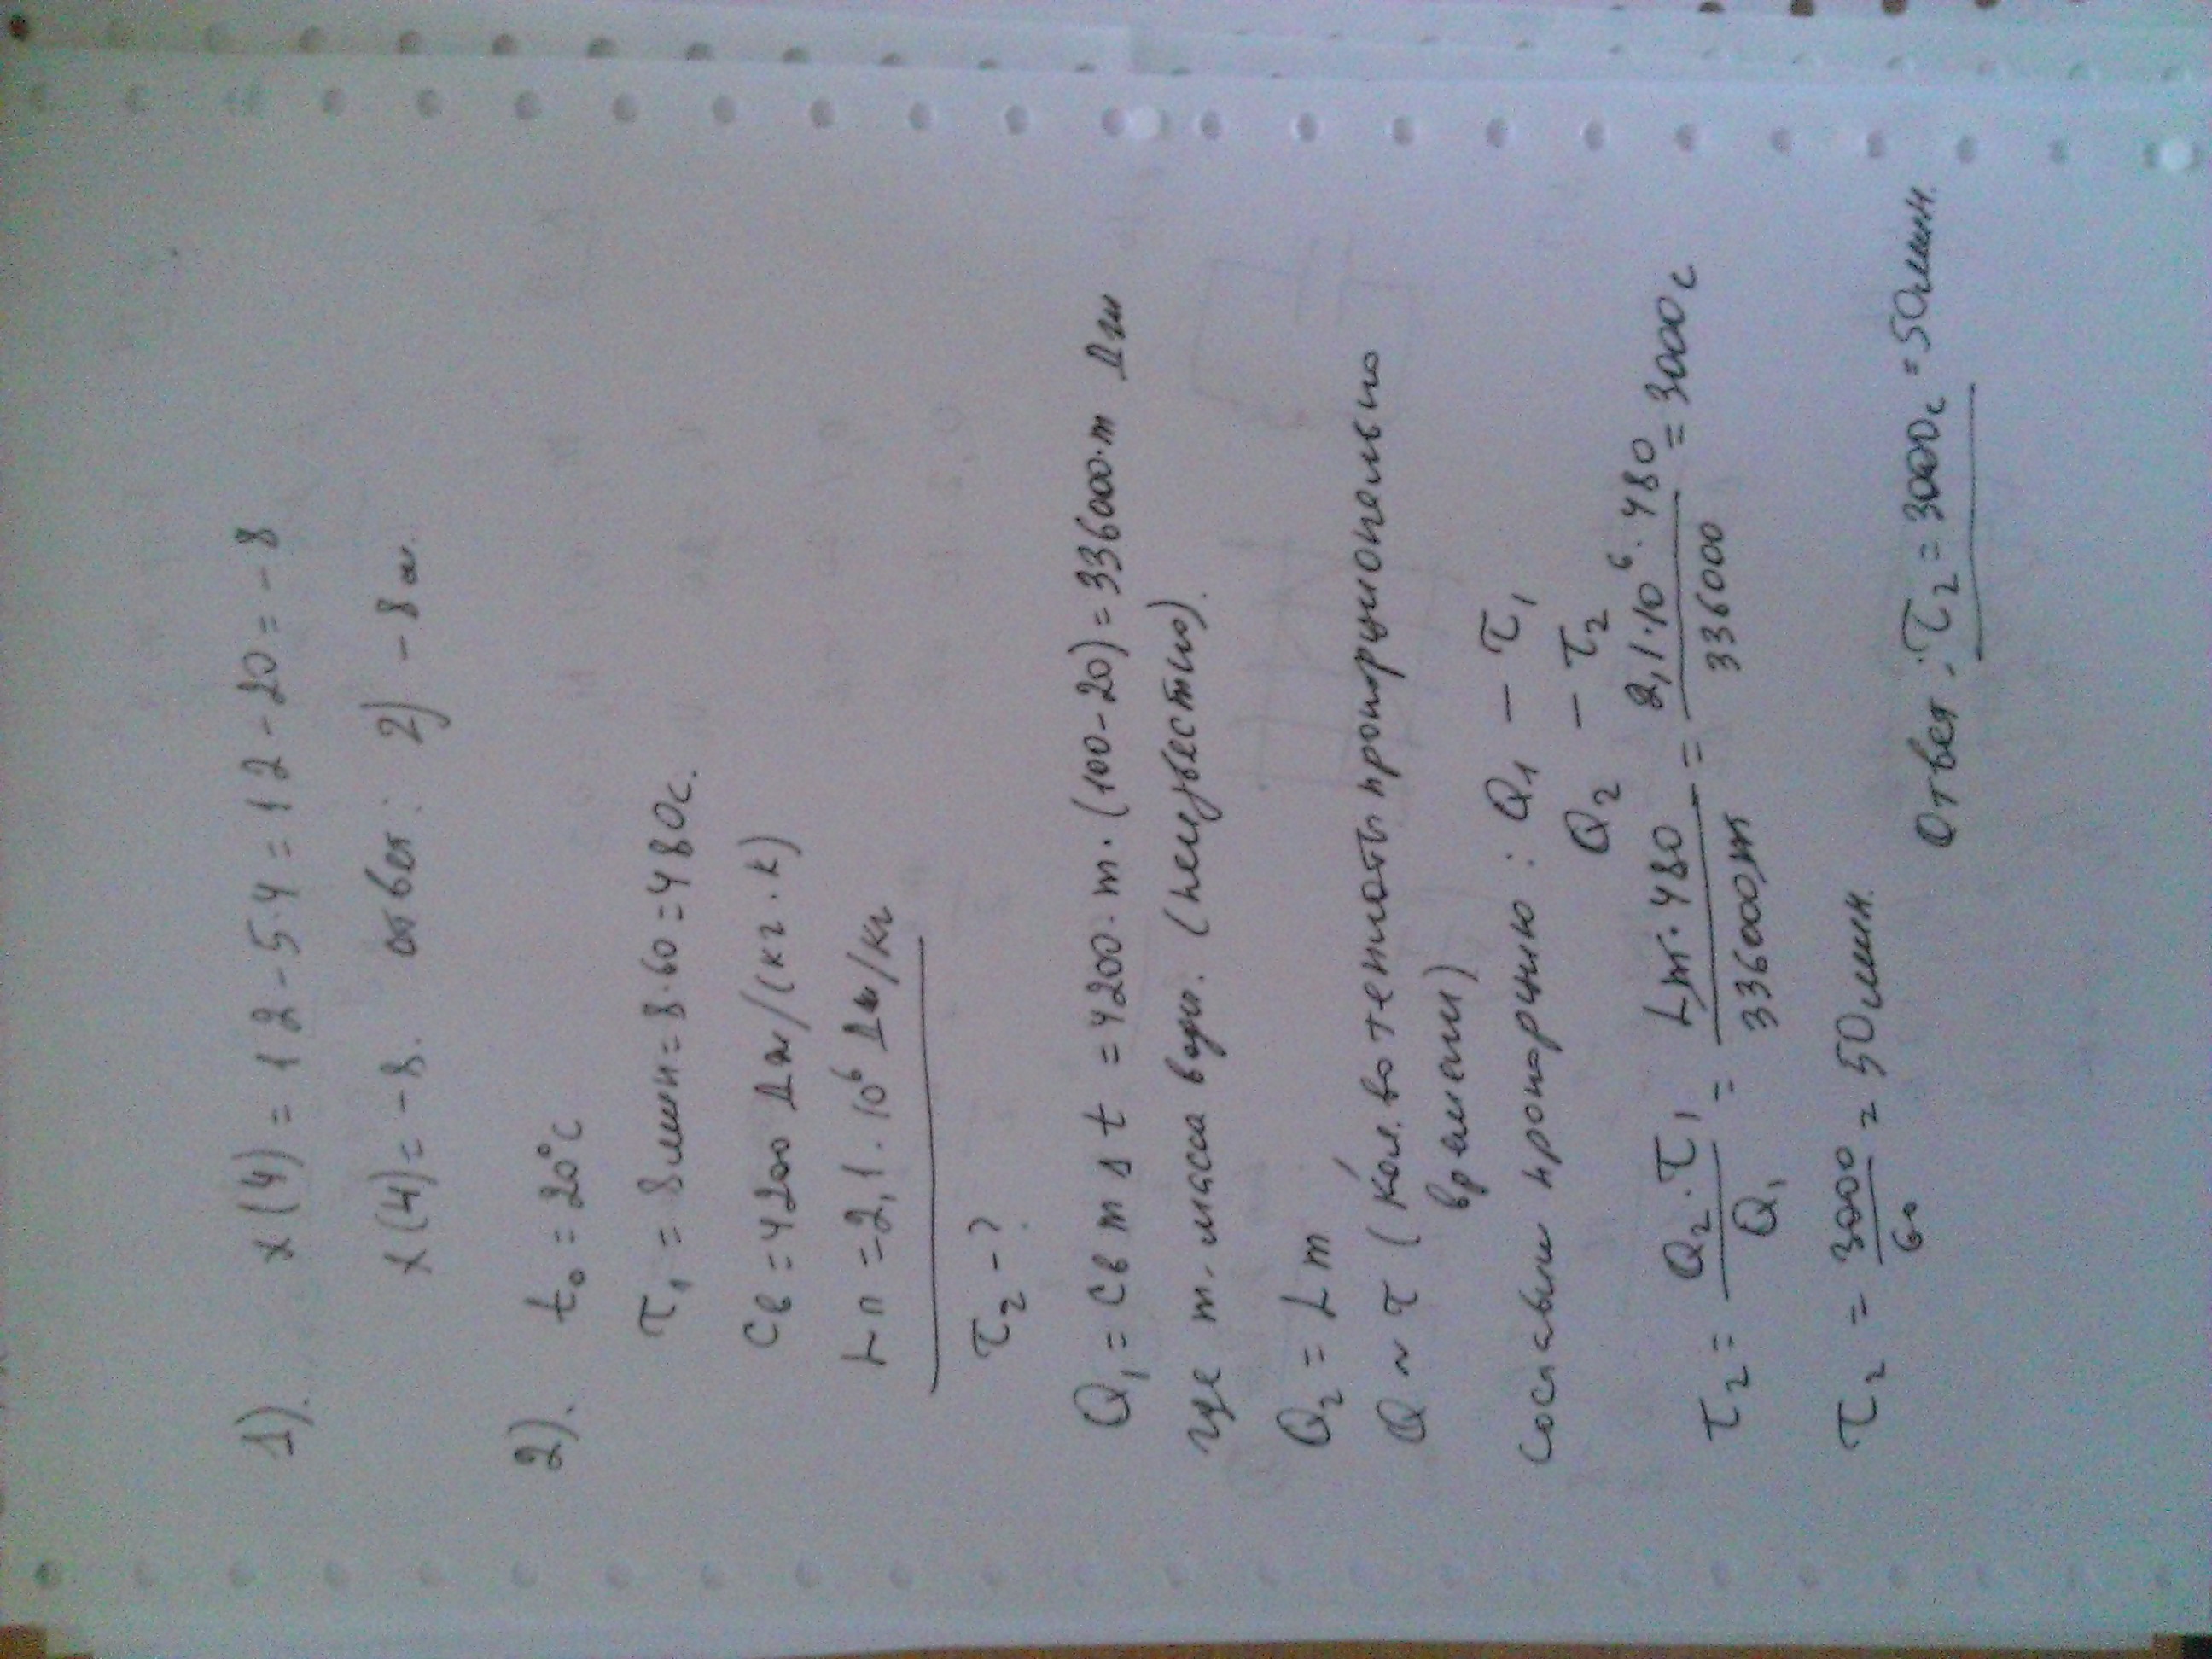 1). x(4) = 12 - 5·4 = 12 - 20 = - 8
x(4) = - 8. ответ: 2) - 8 м.
2). t₀ = 20°C
τ₁ = 8 мин = 8·60 = 480 с.
Cв = 4200 Дж/(кг·К)
Lп = 2,1·10⁶ Дж/кг
τ₂ - ?
Q₁ = Cв m Δt = 4200·m·(100-20) = 336000·m Дж
где m. масса воды. (неизвестно).
Q₂ = L m
Q ~ τ (кол. во теплоты пропорционально
времени)
Составим пропорцию: Q₁ – τ₁
Q₂ – τ₂
τ₂ = Q₂·τ₁ / Q₁ = Lm·480 / 336000m = 2,1·10⁶·480 / 336000 = 3000 с
τ₂ = 3000 / 60 = 50 мин.
Ответ: τ₂ = 3000 с = 50 мин.